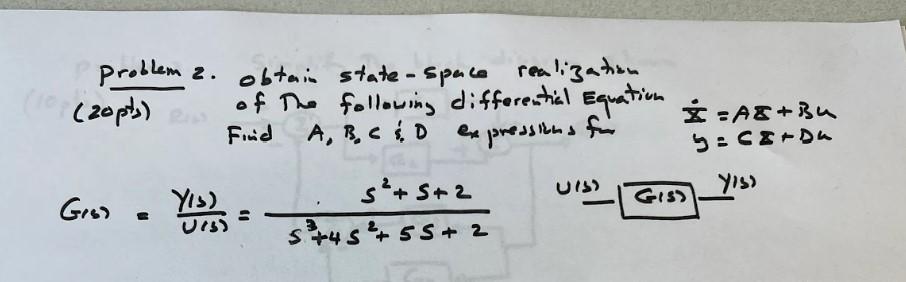 Problem 2. obtain state-space realization
(20pts) of The following differential Equation
Find A, B, C & D expressions for
ẋ = AX + Bu
y = CX + Du
G(s) = Y(s)/U(s) = (s²+ s + 2)/(s³+4s²+ 5s + 2)
U(s) G(s) Y(s)